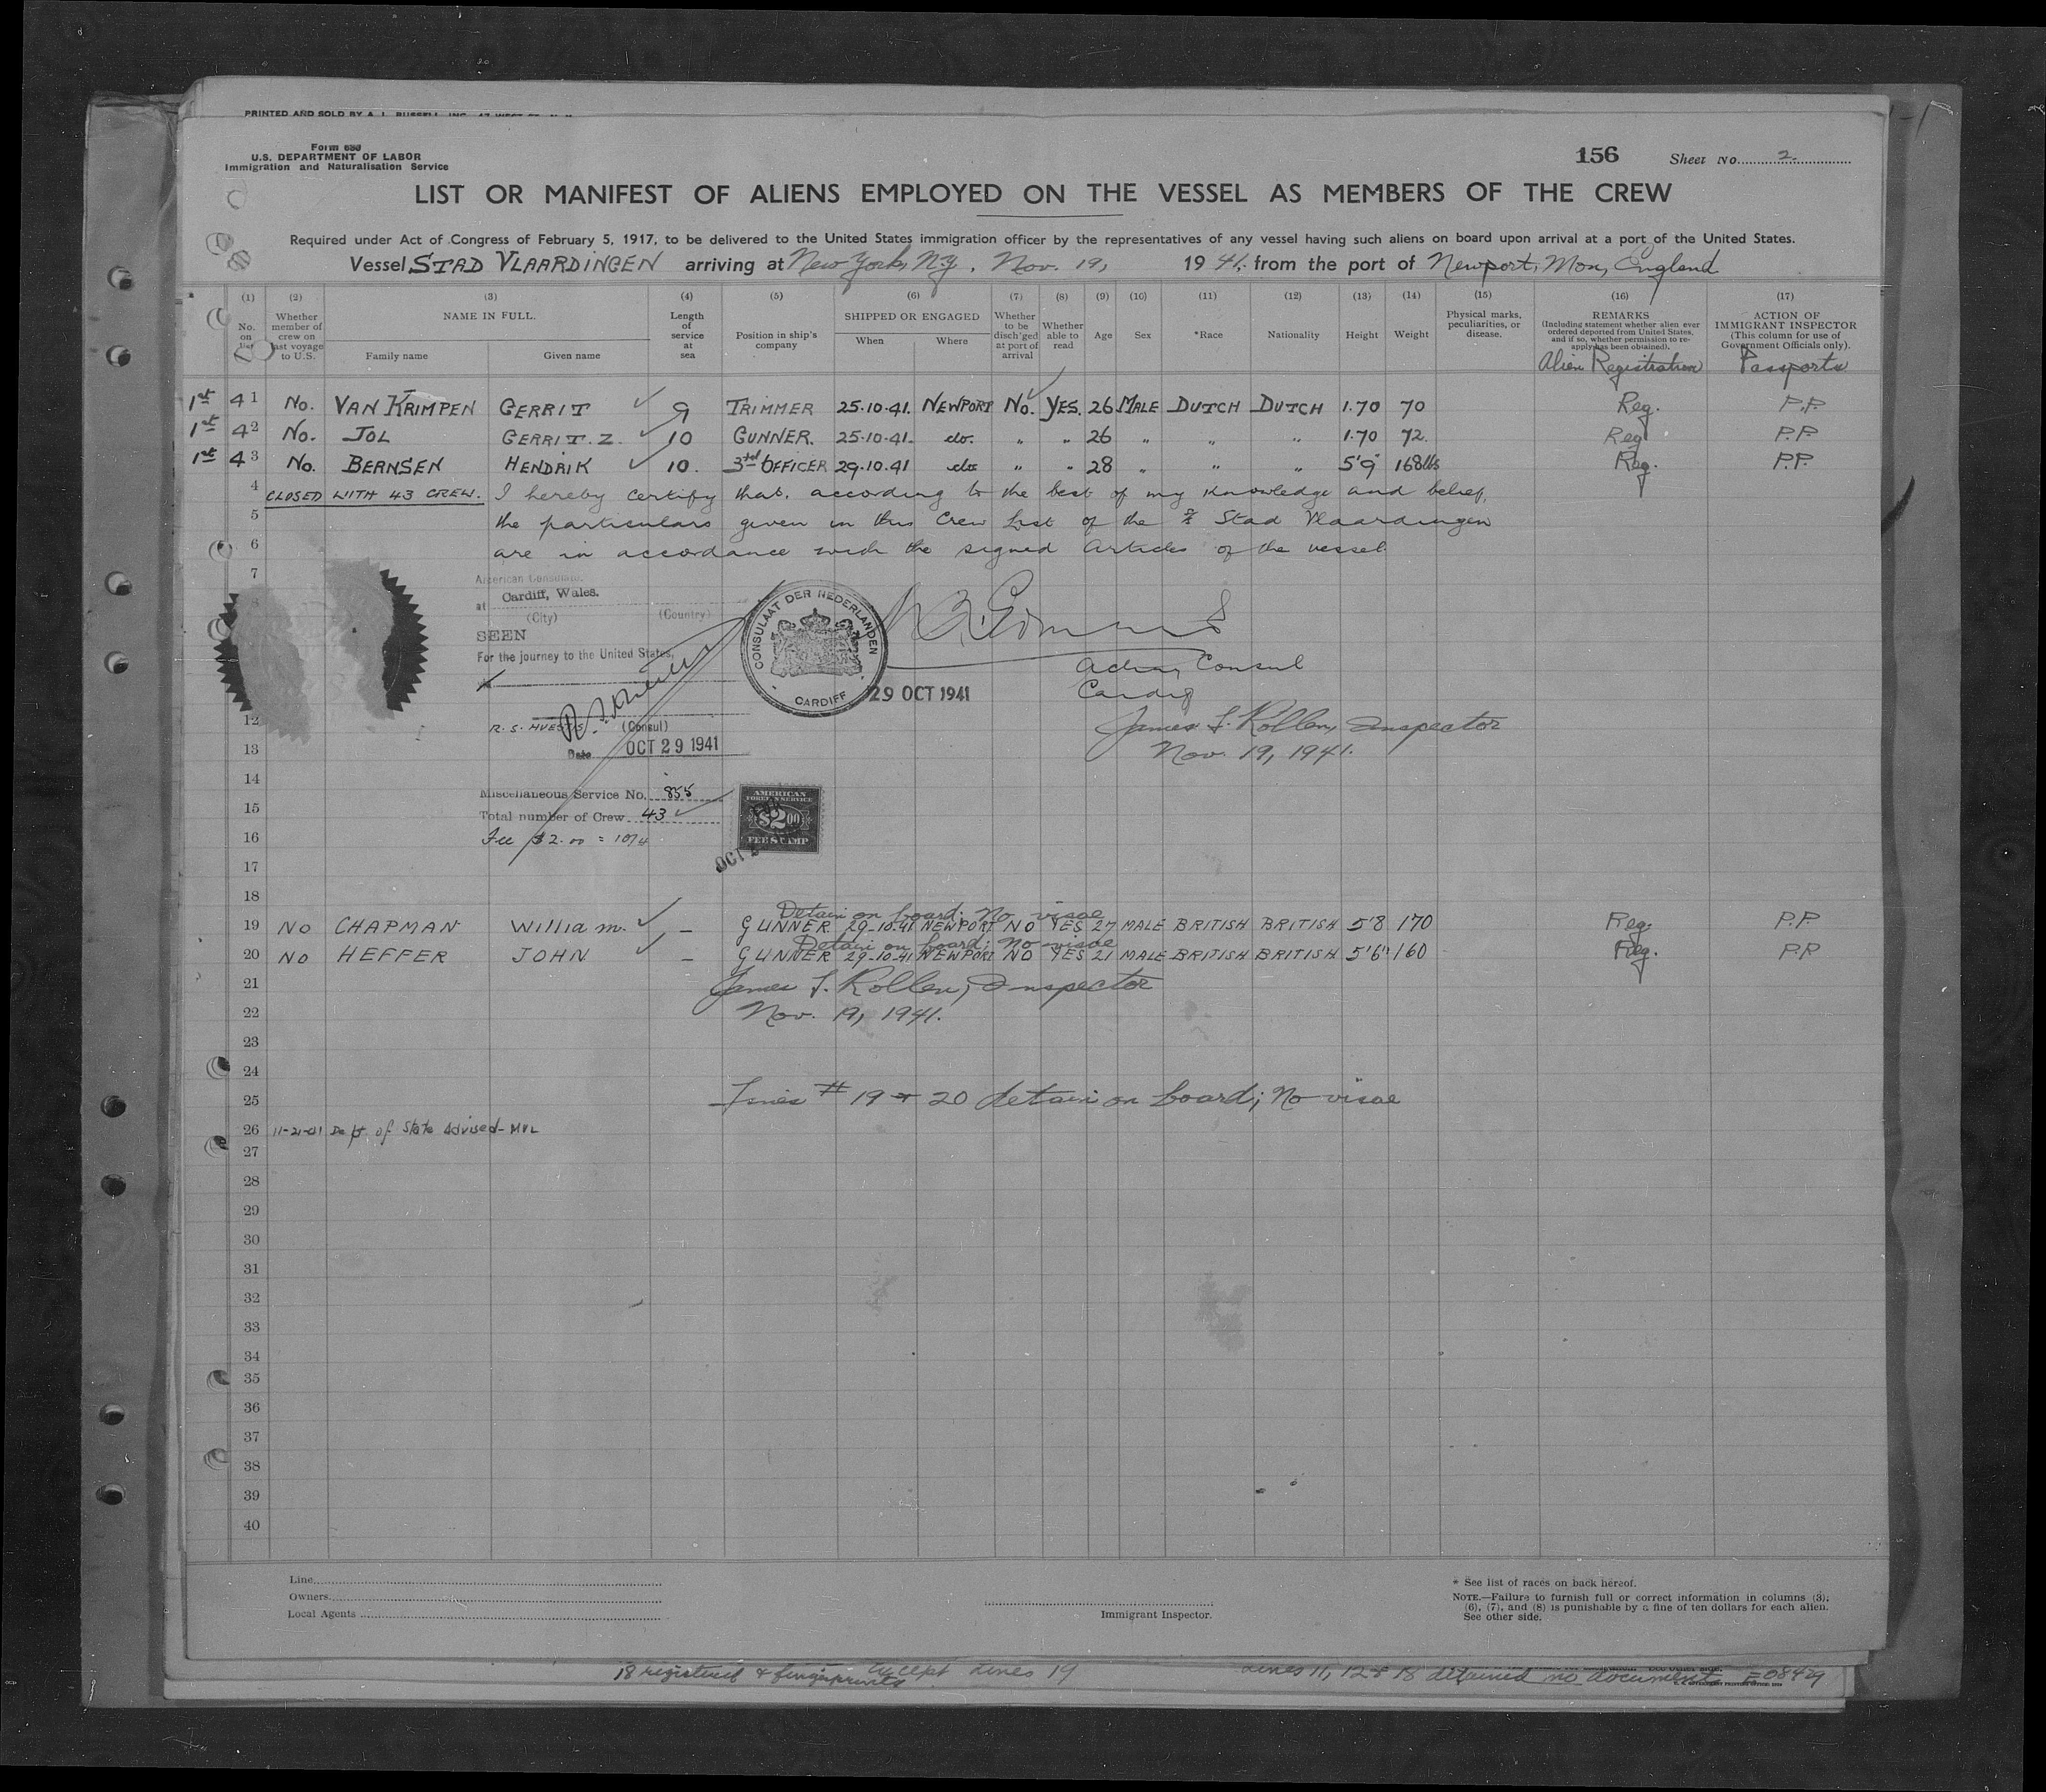 PRINTED AND SOLD BY A. L. RUSSELL, INC.
Form 680
U.S. DEPARTMENT OF LABOR
Immigration and Naturalisation Service
156 Sheet No. 2.
LIST OR MANIFEST OF ALIENS EMPLOYED ON THE VESSEL AS MEMBERS OF THE CREW
Required under Act of Congress of February 5, 1917, to be delivered to the United States immigration officer by the representatives of any vessel having such aliens on board upon arrival at a port of the United States.
Vessel STAD VLAARDINGEN arriving at New York, N.Y. Nov. 19, 1941. from the port of Newport, Mon, England
(1) (2) (3) (4) (5) (6) (7) (8) (9) (10) (11) (12) (13) (14) (15) (16) (17)
No. on list
Whether member of crew on last voyage to U.S.
NAME IN FULL.
Family name Given name
Length of service at sea
Position in ship's company
SHIPPED OR ENGAGED
When Where
Whether to be disch'ged at port of arrival
Whether able to read
Age Sex *Race Nationality Height Weight
Physical marks, peculiarities, or disease.
REMARKS
(Including statement whether alien ever ordered deported from United States, and if so, whether permission to re-apply has been obtained).
Alien Registration
ACTION OF IMMIGRANT INSPECTOR
(This column for use of Government Officials only).
Passports
1st 41 No. VAN KRIMPEN GERRIT 9 TRIMMER 25.10.41. NEWPORT No. YES. 26 MALE DUTCH DUTCH 1.70 70 Reg. P.P.
1st 42 No. JOL GERRIT. Z. 10 GUNNER. 25.10.41. do. " " 26 " " " 1.70 72. Reg P.P.
1st 43 No. BERNSEN HENDRIK 10. 3rd OFFICER 29.10.41 do " " 28 " " " 5'9" 168 lbs Reg. P.P.
4 CLOSED WITH 43 CREW. I hereby certify that, according to the best of my knowledge and belief,
5 the particulars given in this Crew List of the S/S Stad Vlaardingen
6 are in accordance with the signed Articles of the vessel.
7 American Consulate.
at Cardiff, Wales.
(City) (Country)
SEEN
For the journey to the United States,
CONSULAAT DER NEDERLANDEN
CARDIFF
29 OCT 1941
Acting Consul
Cardiff
R. S. HUESTIS (Consul)
Date OCT 29 1941
James F. Rollen, Inspector
Nov. 19, 1941.
12
13
14
Miscellaneous Service No. 855
15
Total number of Crew 43
16
Fee $2.00 = 10/4
AMERICAN
FOREIGN SERVICE
$2.00
FEE STAMP
OCT 2
17
18
Detain on board; No visae
19 NO CHAPMAN William. – GUNNER 29-10-41 NEWPORT NO YES 27 MALE BRITISH BRITISH 5'8 170 Reg. P.P.
Detain on board; No visae
20 NO HEFFER JOHN – GUNNER 29-10-41 NEWPORT NO YES 21 MALE BRITISH BRITISH 5'6" 160 Reg. P.P.
21 James F. Rollen, Inspector
22 Nov. 19, 1941.
23
24
25 Lines # 19 & 20 detain on board; No visae
26 11-21-41 Dept. of State Advised - MVL
27
28
29
30
31
32
33
34
35
36
37
38
39
40
Line
Owners
Local Agents
Immigrant Inspector.
* See list of races on back hereof.
NOTE.—Failure to furnish full or correct information in columns (3), (6), (7), and (8) is punishable by a fine of ten dollars for each alien. See other side.
18 registered & fingerprints except Lines 19
Lines 11, 12 & 18 detained no documents